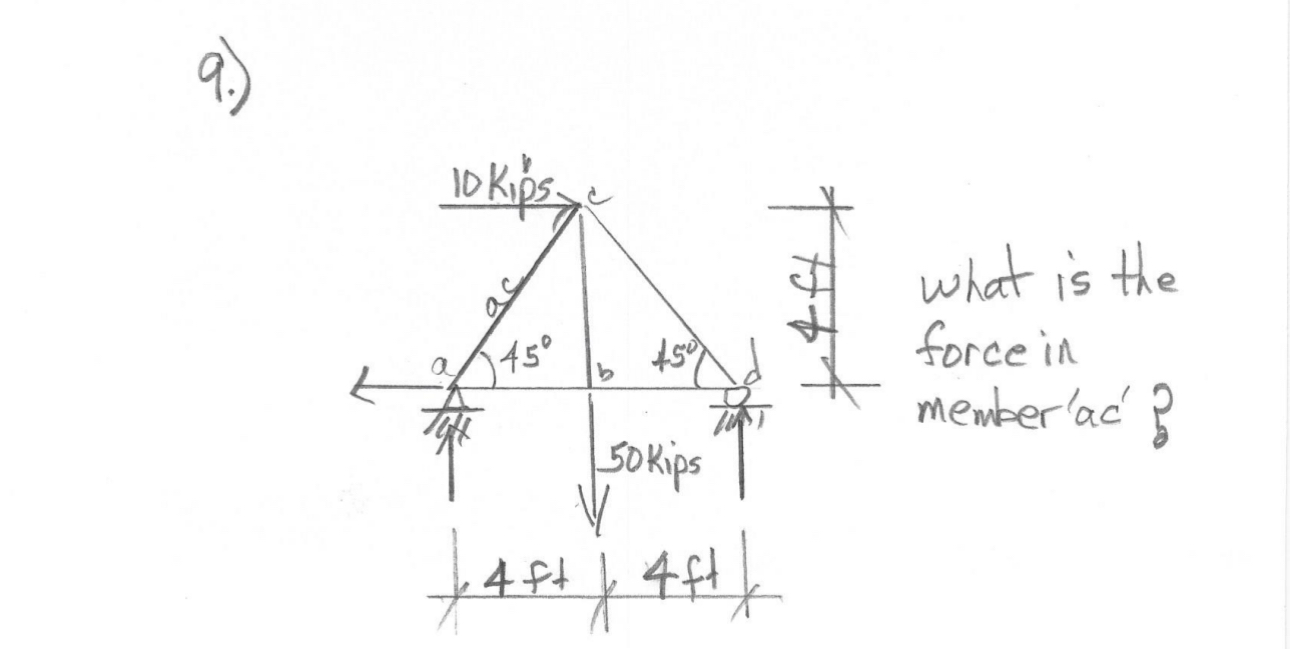 9.)
10 Kips
c
ac
a
45°
b
45°
d
4 ft
50 Kips
4 ft
4 ft
what is the
force in
member 'ac' ?